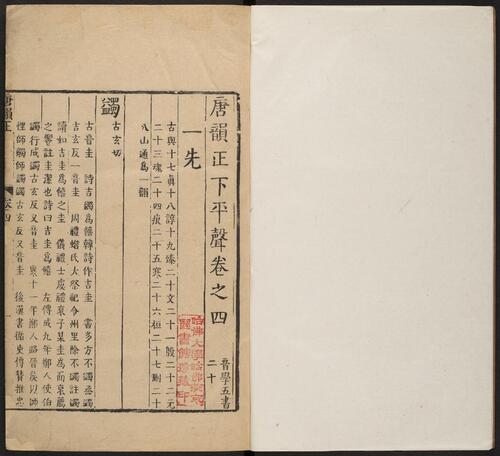 唐韻正下平聲卷之四
音學五書
二十
哈佛大學哈佛燕京
圖書館珍藏印
一先
古與十七眞十八諄十九臻二十文二十一殷二十二元
二十三魂二十四痕二十五寒二十六桓二十七刪二十
八山通爲一韻
蠲
古玄切
古音圭 詩吉蠲爲饎韓詩作吉圭 書多方不蠲烝蠲
古玄反一音圭 周禮蜡氏大祭祀令州里除不蠲註蠲
讀如吉圭爲饎之圭 儀禮士虞禮哀子某圭爲而哀薦
之饗註圭潔也詩曰吉圭爲饎 左傳成九年鄭人使伯
蠲行成蠲古玄反又音圭 襄十一年鄭人賂晉侯以師
悝師觸師蠲蠲古玄反又音圭 後漢書循吏傳贊推忠
唐韻正
卷四